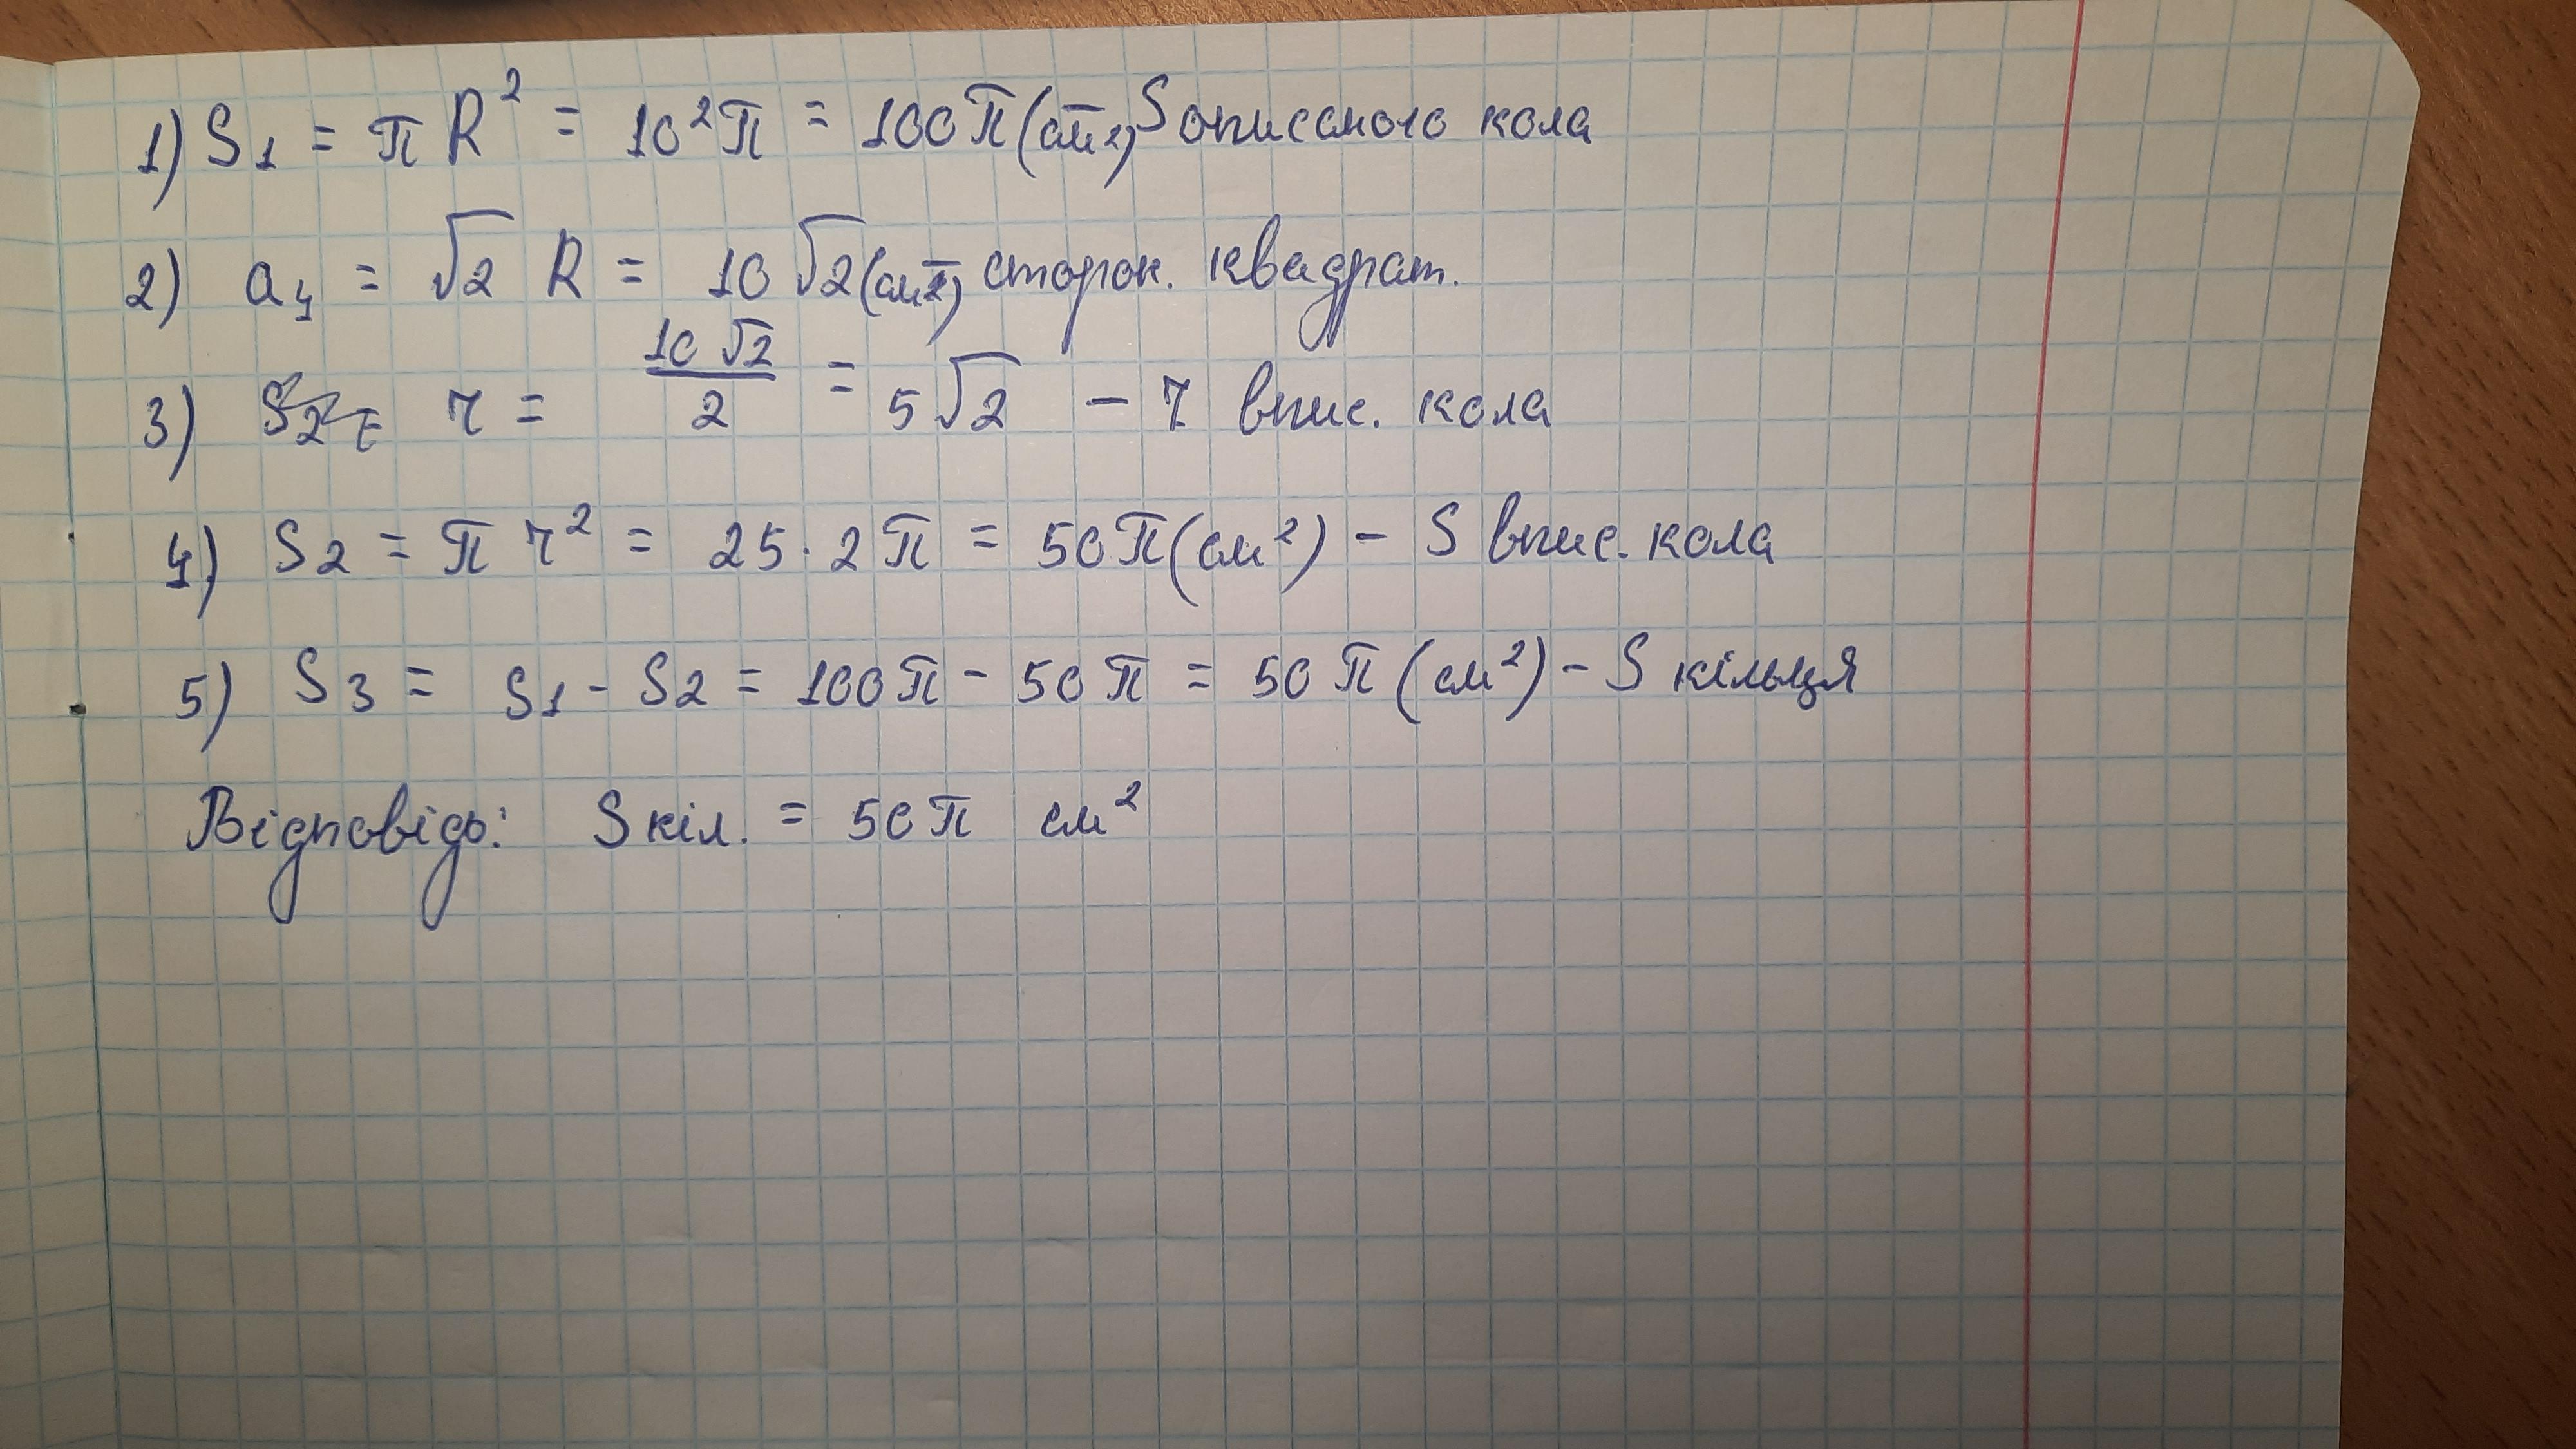 1) S₁ = π R² = 10²π = 100π (см²) S описаного кола
2) a₄ = √2 R = 10√2 (см) сторон. квадрат.
3) r = 10√2/2 = 5√2 – r впис. кола
4) S₂ = π r² = 25·2π = 50π (см²) – S впис. кола
5) S₃ = S₁ - S₂ = 100π - 50π = 50π (см²) – S кільця
Відповідь: S кіл. = 50π см²